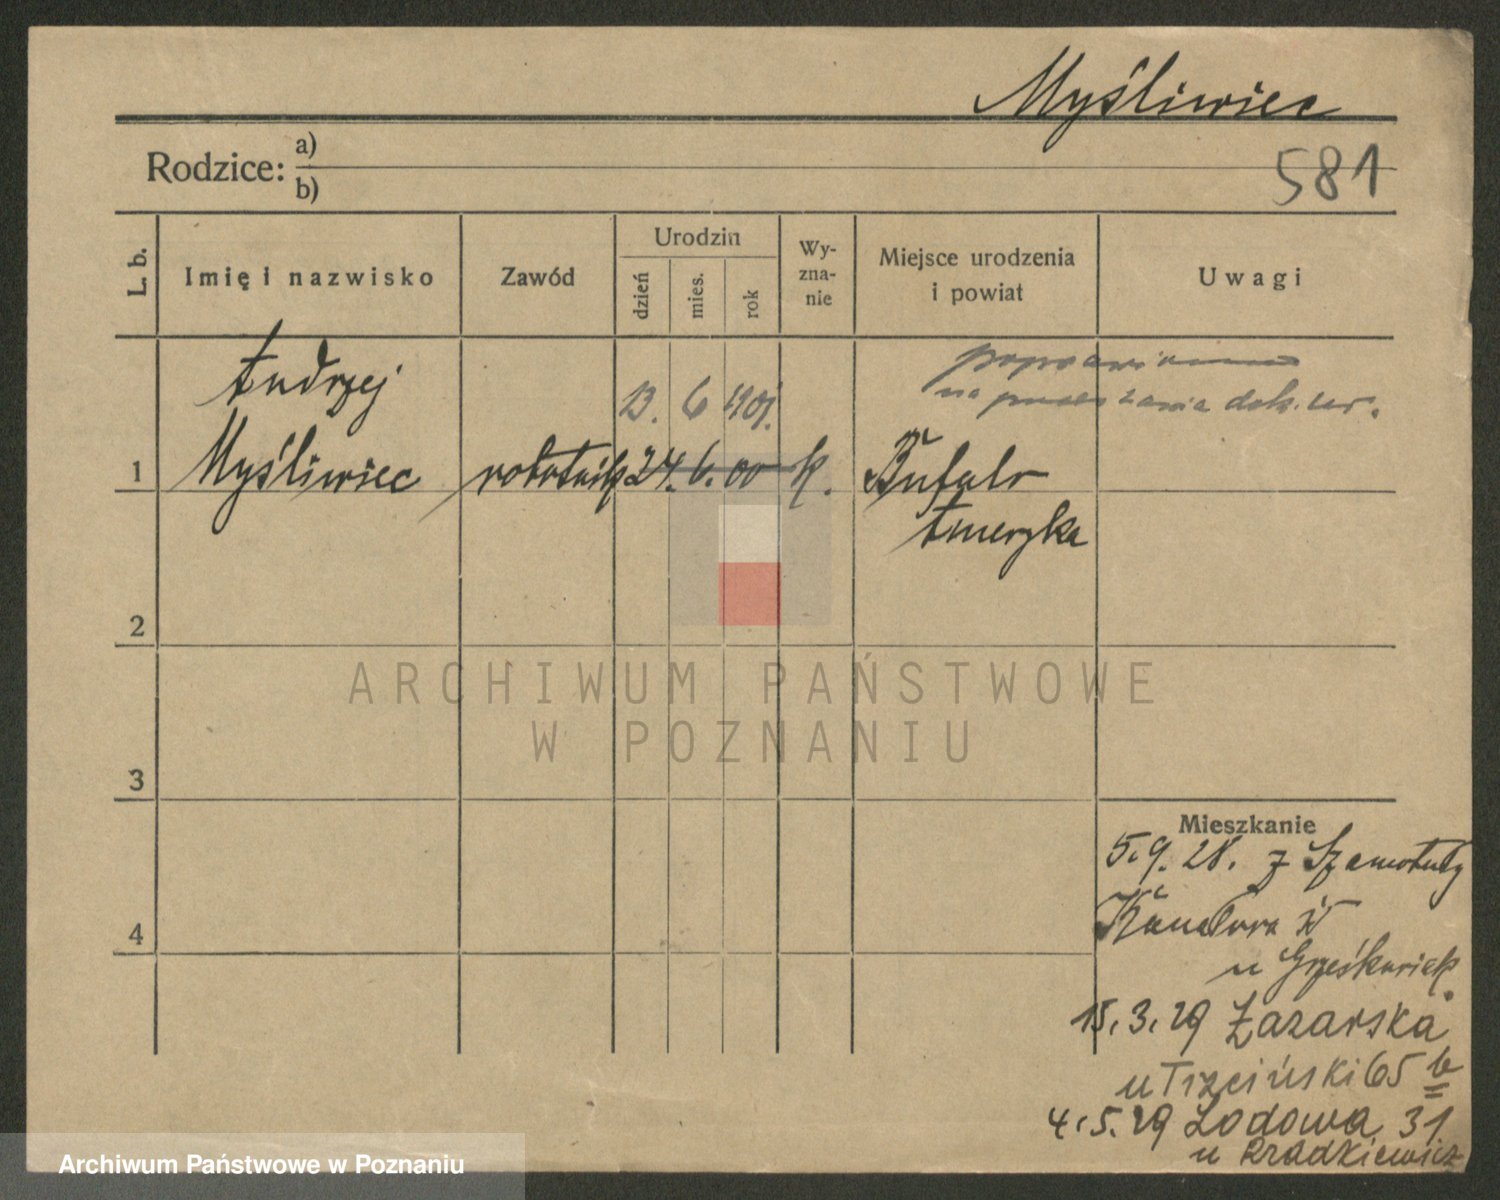 Myśliwiec
581
Rodzice: a)
b)
L. b.
Imię i nazwisko
Zawód
Urodzin
dzień
mies.
rok
Wy-
zna-
nie
Miejsce urodzenia
i powiat
Uwagi
Andrzej
13. 6 1901.
poprawiono
na dok.
1
Myśliwiec
robotnik
24. 6. 00
k.
Bufalo
Ameryka
2
3
4
ARCHIWUM PAŃSTWOWE
W POZNANIU
Mieszkanie
5.9.28. z Szamotuły
u Grześkowiak
15.3.29 Łazarska
u Trzciński 65 b
4.5.29 Lodowa 31
u Rradkiewicz
Archiwum Państwowe w Poznaniu